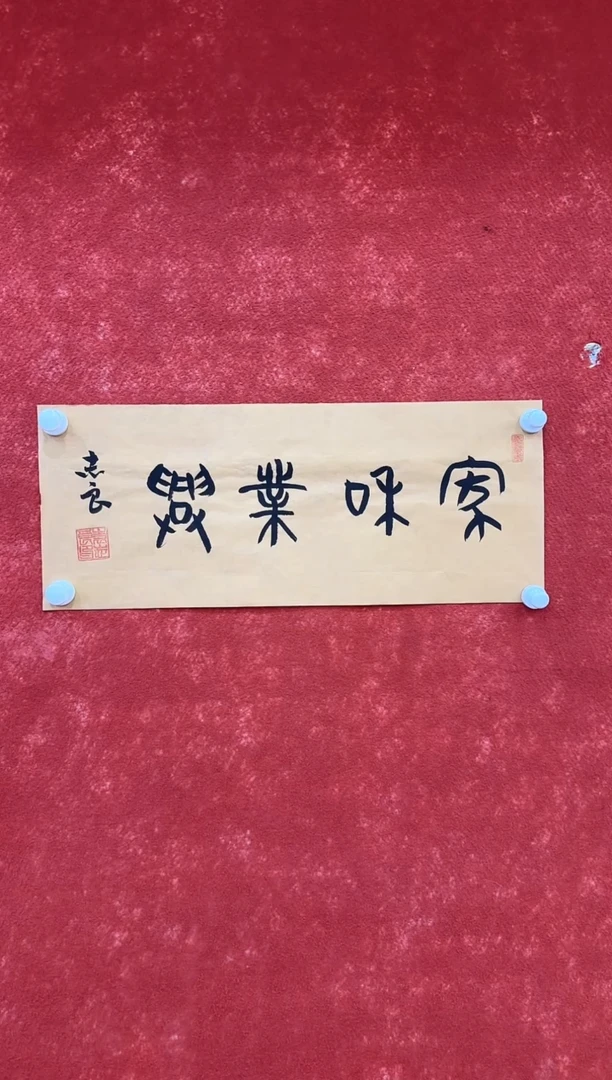 家和業興
志良